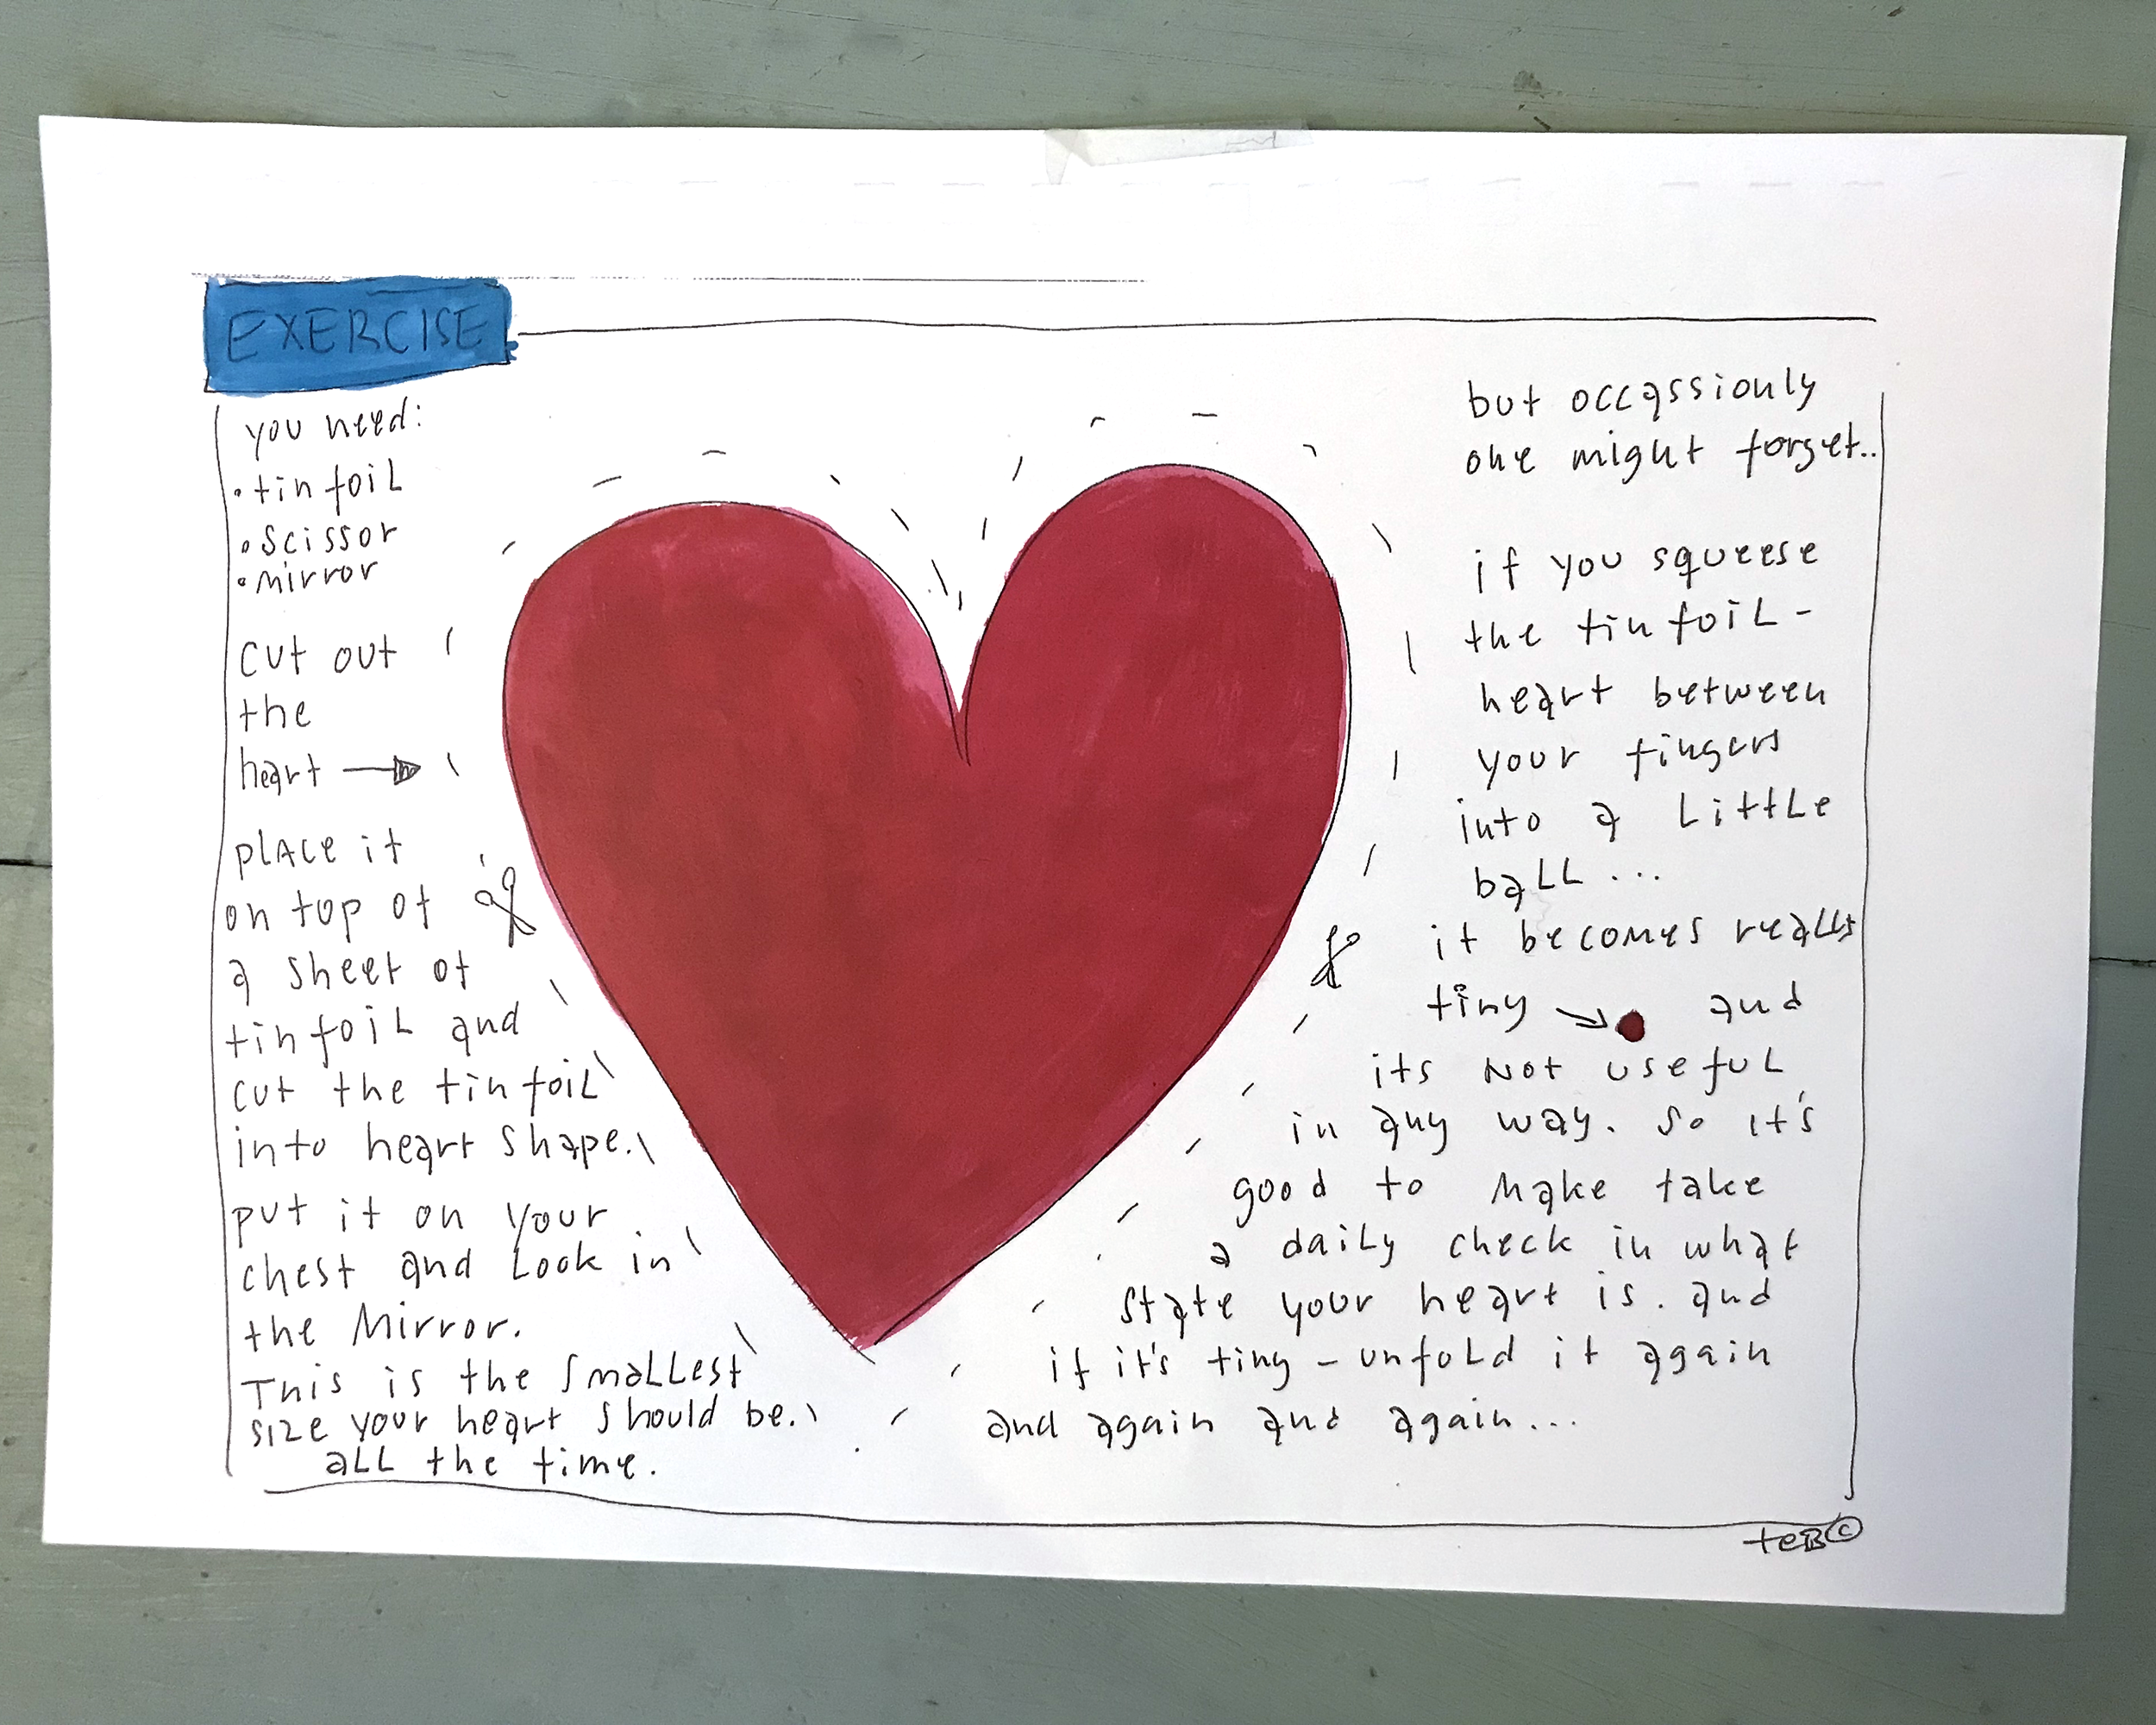 EXERCISE
you need:
• tinfoil
• scissor
• mirror
cut out
the
heart
place it
on top of
a sheet of
tinfoil and
cut the tinfoil
into heart shape.
put it on your
chest and look in
the mirror.
This is the smallest
size your heart should be.
all the time.
but occassionly
one might forget..
if you squeese
the tinfoil-
heart between
your fingers
into a little
ball...
it becomes really
tiny and
its not useful
in any way. so it's
good to make take
a daily check in what
state your heart is. and
if it's tiny - unfold it again
and again and again...
teB©